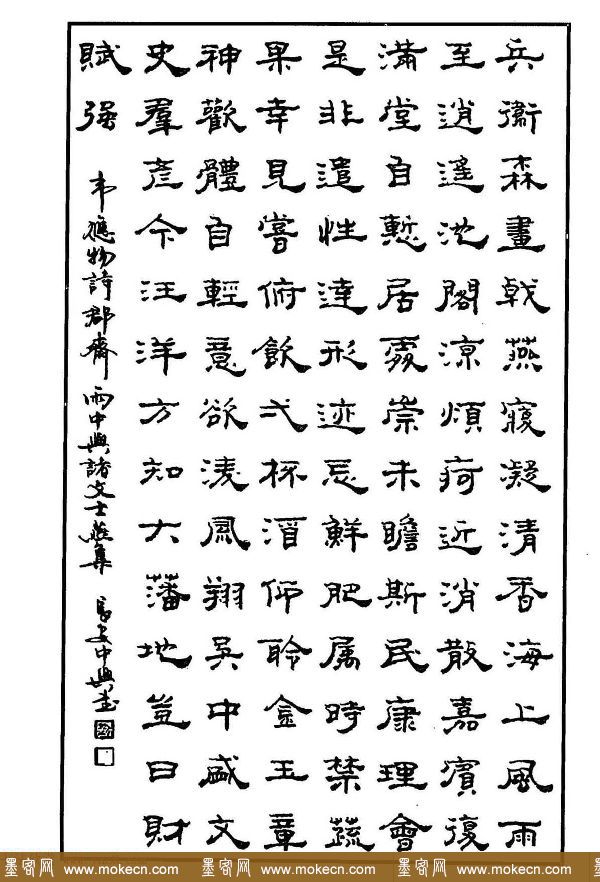 兵衛森畫戟燕寢凝清香海上風雨
至逍遥池閣涼煩疴近消散嘉賓復
滿堂自慙居處崇未瞻斯民康理會
是非遣性達形迹忘鮮肥属時禁蔬
果幸見嘗俯飲弌杯酒仰聆金玉章
神歡體自輕意欲淩風翔吳中盛文
史羣彦今汪洋方知大藩地豈曰財
賦强 韦應物詩郡齋雨中與諸文士燕集 中興書
墨客网 www.mokecn.com 墨客网 www.mokecn.com 墨客网 www.mokecn.com